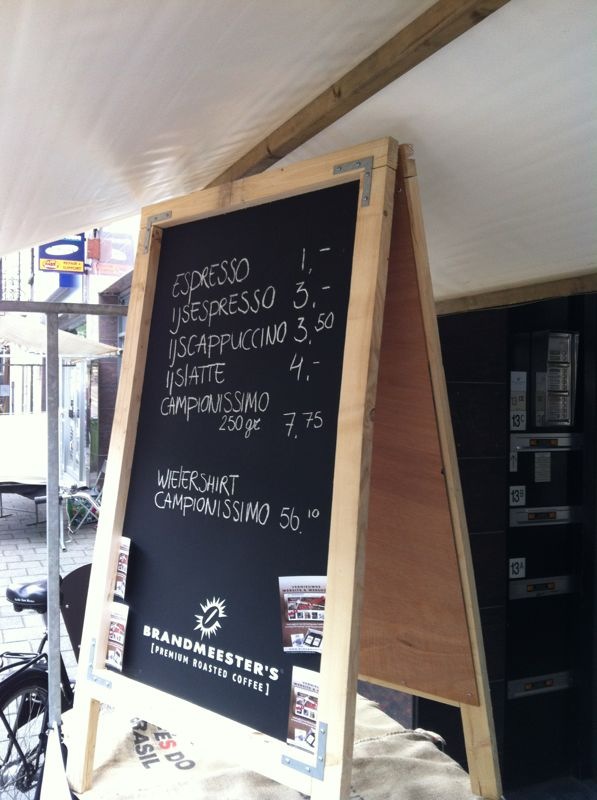 ESPRESSO 1,-
IJSESPRESSO 3,-
IJSCAPPUCCINO 3,50
IJSLATTE 4,-
CAMPIONISSIMO
250 gr 7,75
WIELERSHIRT
CAMPIONISSIMO 56,10
BRANDMEESTER'S
[PREMIUM ROASTED COFFEE]
ÉS DO
RASIL
13C
13B
13A